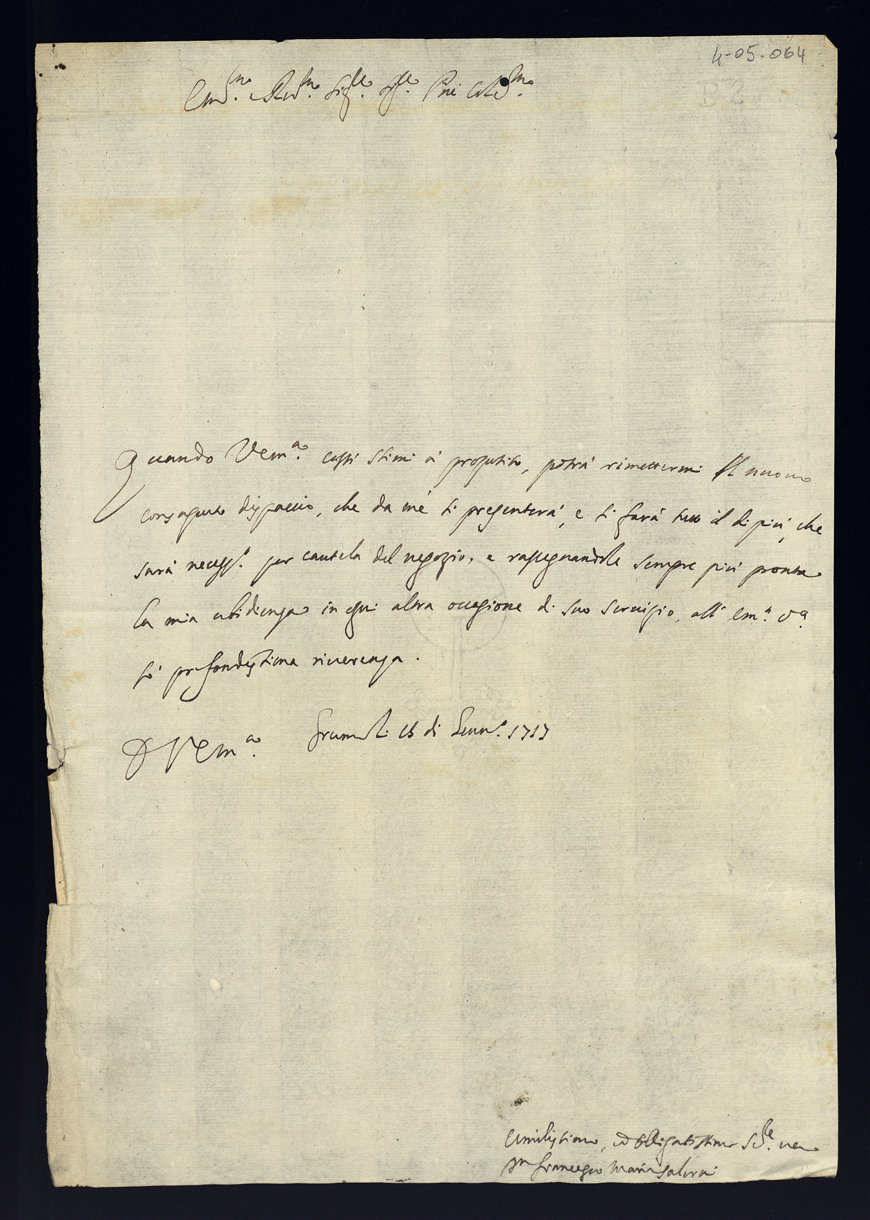 4-05-064
B 2
Em.mo e Rev.mo Sig.re Sig.re P.ne Col.mo
Quando V Em.a cossì stimi à proposito, potrà rimettermi il nuovo
consaputo dispaccio, che da me si presenterà, e si farà tutto il di più, che
sarà necess.o per cautela del negozio, e rassegnandole sempre più pronta
la mia ubidienza in ogni altra occasione di suo servizio, all' Em.a V.a
fò profondissima riverenza.
D V Em.a
di Genn.o 1717
Umilissimo, ed obligatissimo S.re vero
Francesco Maria